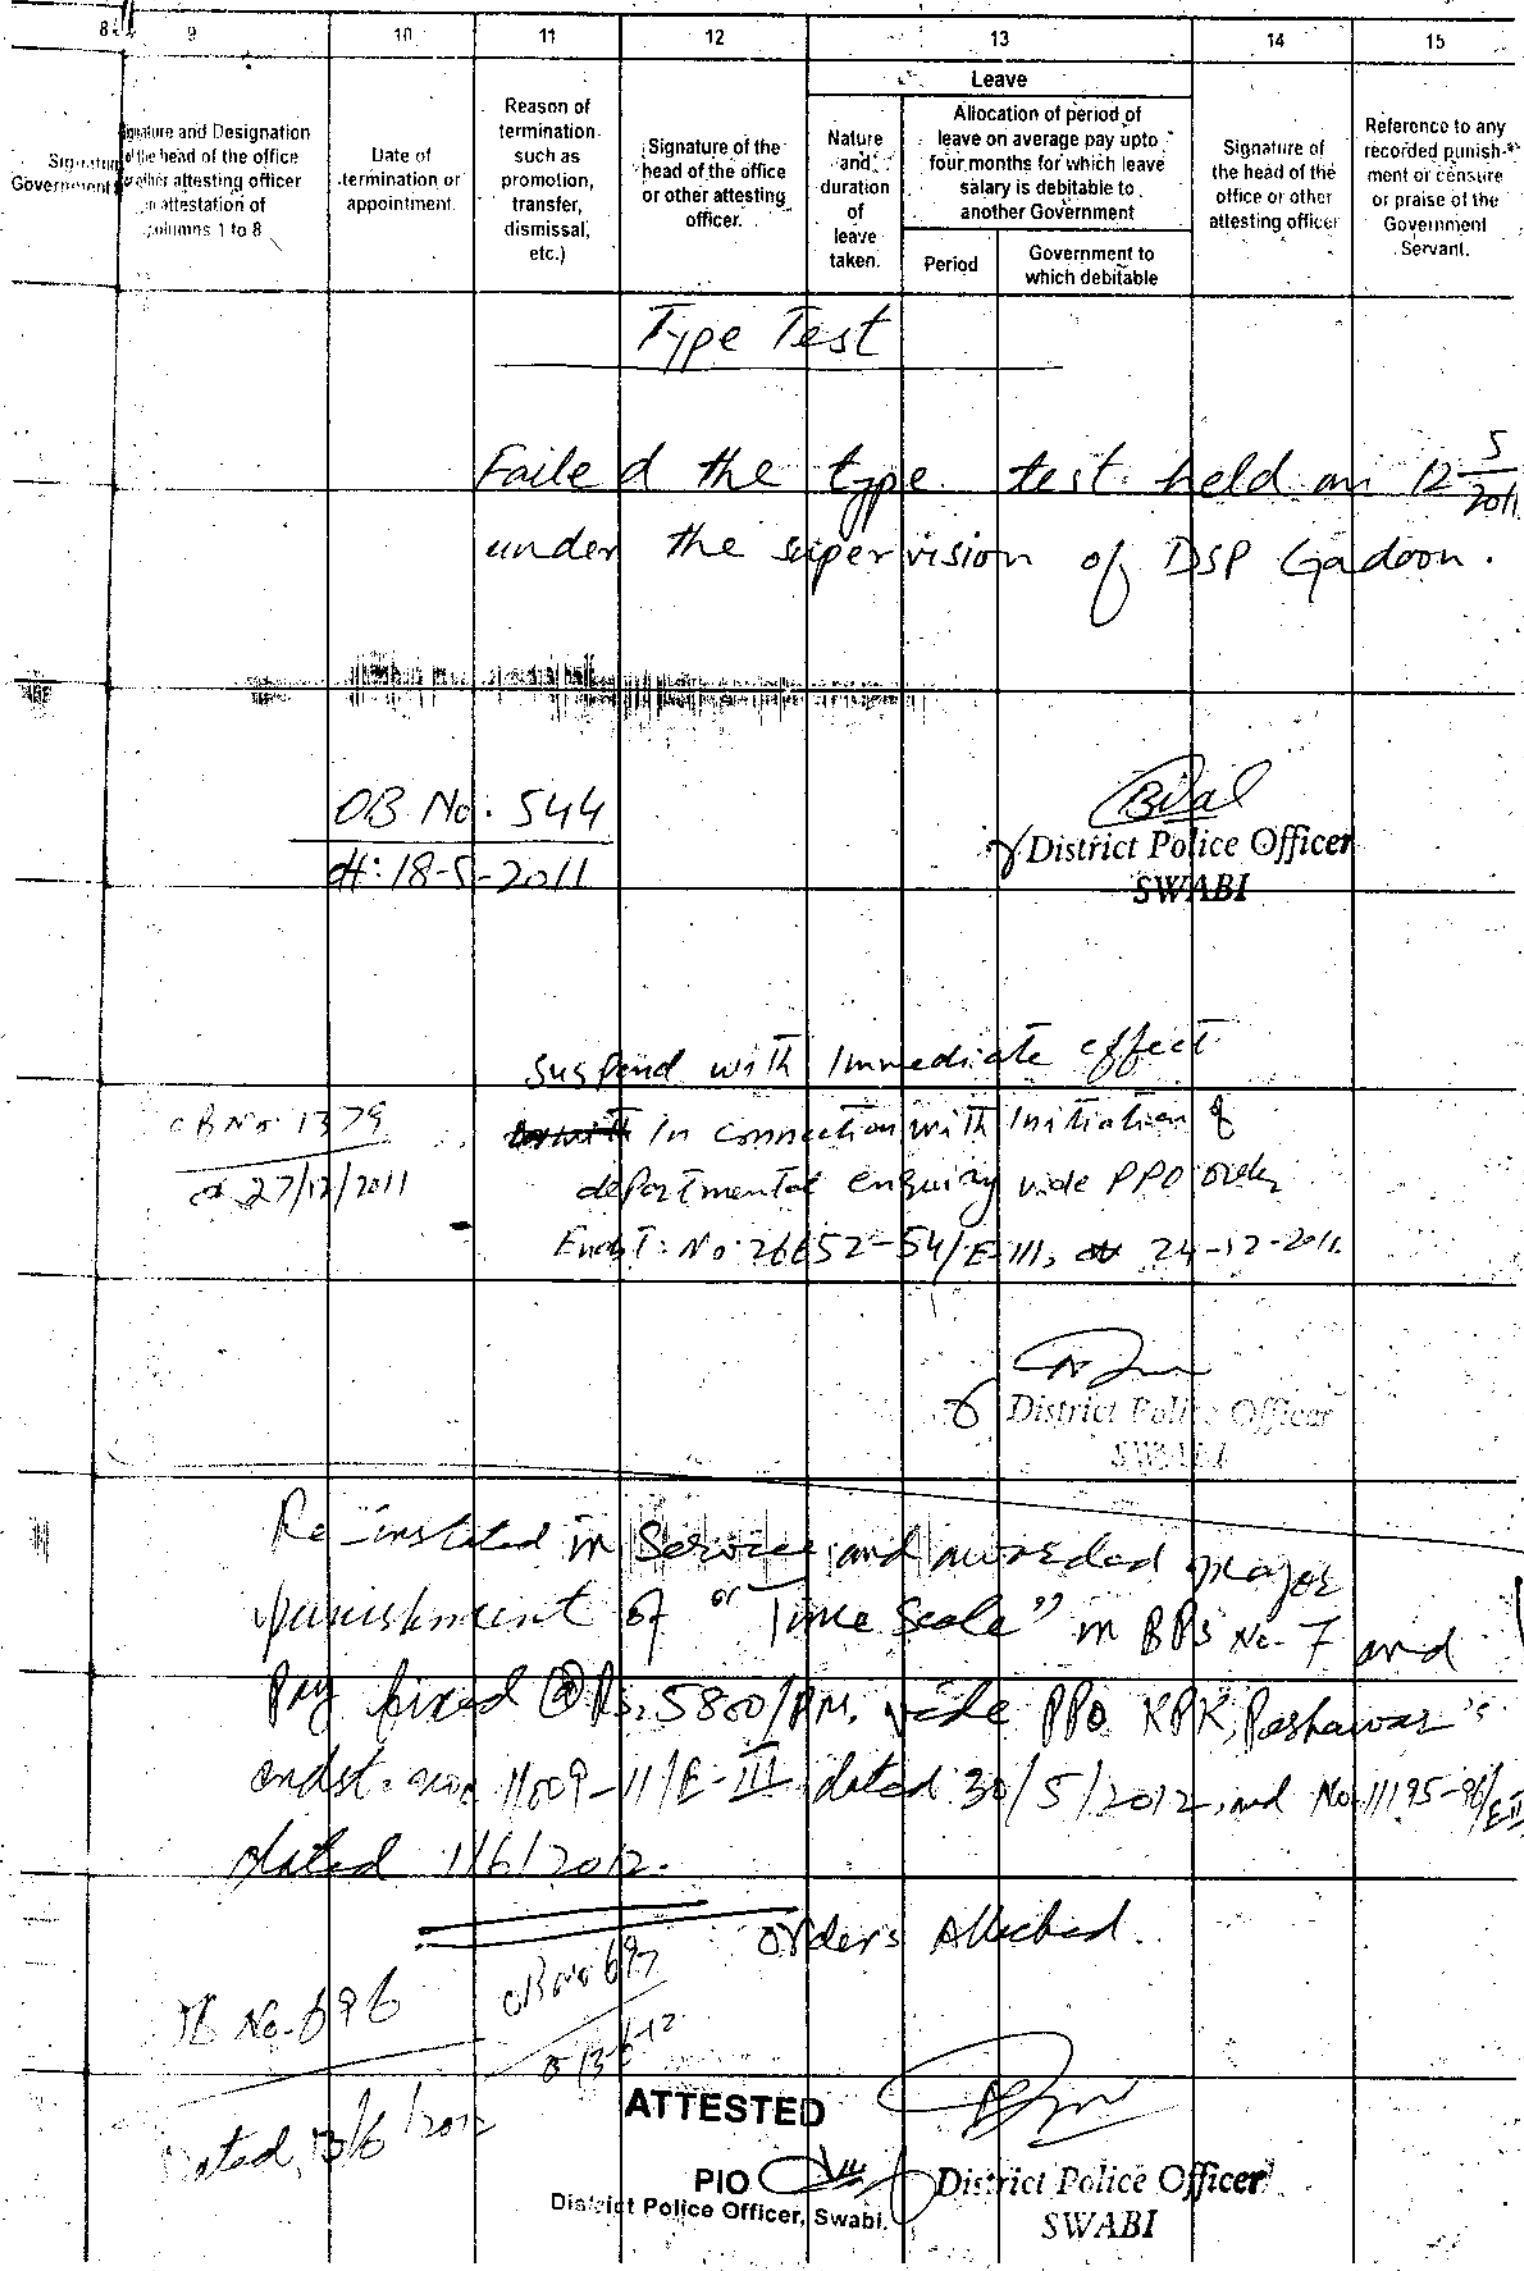 8 9 10 11 12 13 14 15
Leave
Signature
Government
Signature and Designation
of the head of the office
or other attesting officer
in attestation of
columns 1 to 8
Date of
termination or
appointment.
Reason of
termination
such as
promotion,
transfer,
dismissal,
etc.)
Signature of the
head of the office
or other attesting
officer.
Nature
and
duration
of
leave
taken.
Allocation of period of
leave on average pay upto
four months for which leave
salary is debitable to
another Government
Period
Government to
which debitable
Signature of
the head of the
office or other
attesting officer
Reference to any
recorded punish-
ment or censure
or praise of the
Government
Servant.
Type Test
Failed the type test held on 12 5/2011
under the supervision of DSP Gadoon.
OB No. 544
dt: 18-5-2011
District Police Officer
SWABI
Suspend with Immediate effect
In connection with Initiation of
departmental enquiry vide PPO order
Endst: No. 26652-54/E-III, dt 24-12-2011.
OB No. 1379
dt 27/12/2011
District Police Officer
SWABI
Re-instated in Service and awarded major
punishment of "Time Scale" in BPS No. 7 and
Pay fixed @ Rs. 5800/PM. vide PPO KPK, Peshawar's
endst: no. 11009-11/E-III dated 30/5/2012, and No. 11195-96/E-II
dated 1/6/2012.
Orders Attached.
OB No. 696
Dated 13/6/2012
OB No 697
ATTESTED
PIO
District Police Officer, Swabi.
District Police Officer
SWABI